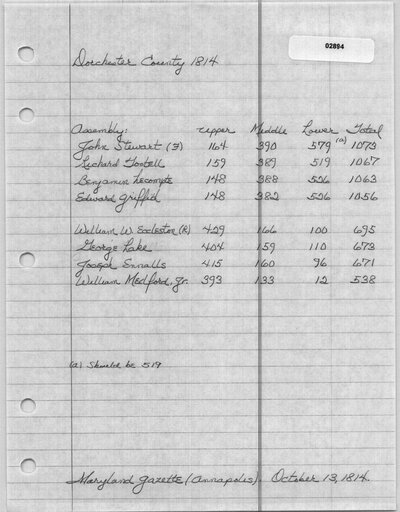 02894
Dorchester County 1814
Assembly: Upper Middle Lower Total
John Stewart (F) 164 390 579 (a) 1073
Richard Tootell 159 389 519 1067
Benjamin Lecompte 148 388 526 1063
Edward Griffid 148 382 526 1056
William W. Eccleston (R) 429 166 100 695
George Lake 404 159 110 673
Joseph Ennalls 415 160 96 671
William Medford, Jr. 393 133 12 538
(a) Should be 519
Maryland Gazette (Annapolis). October 13, 1814.